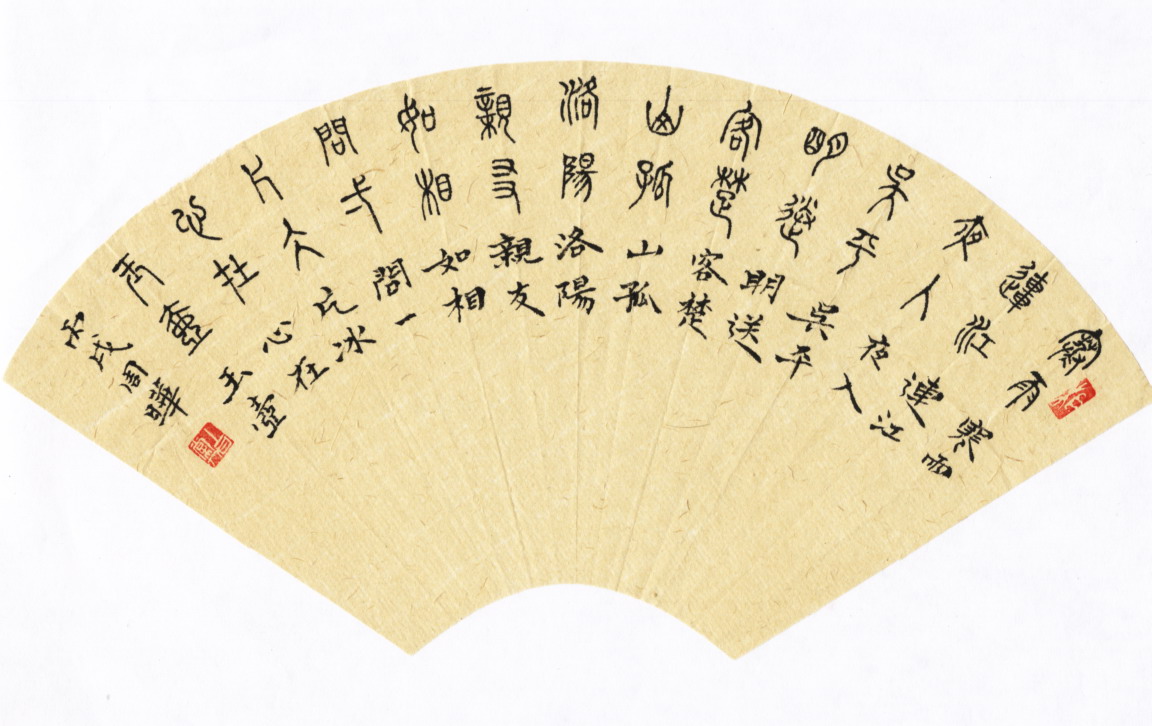 寒雨寒雨
連江連江
夜入夜入
吳平吳平
明送明送
客楚客楚
山孤山孤
洛陽洛陽
親友親友
如相如相
問弌問一
片冰片冰
心在心在
玉壺玉壺
丙戌周曄